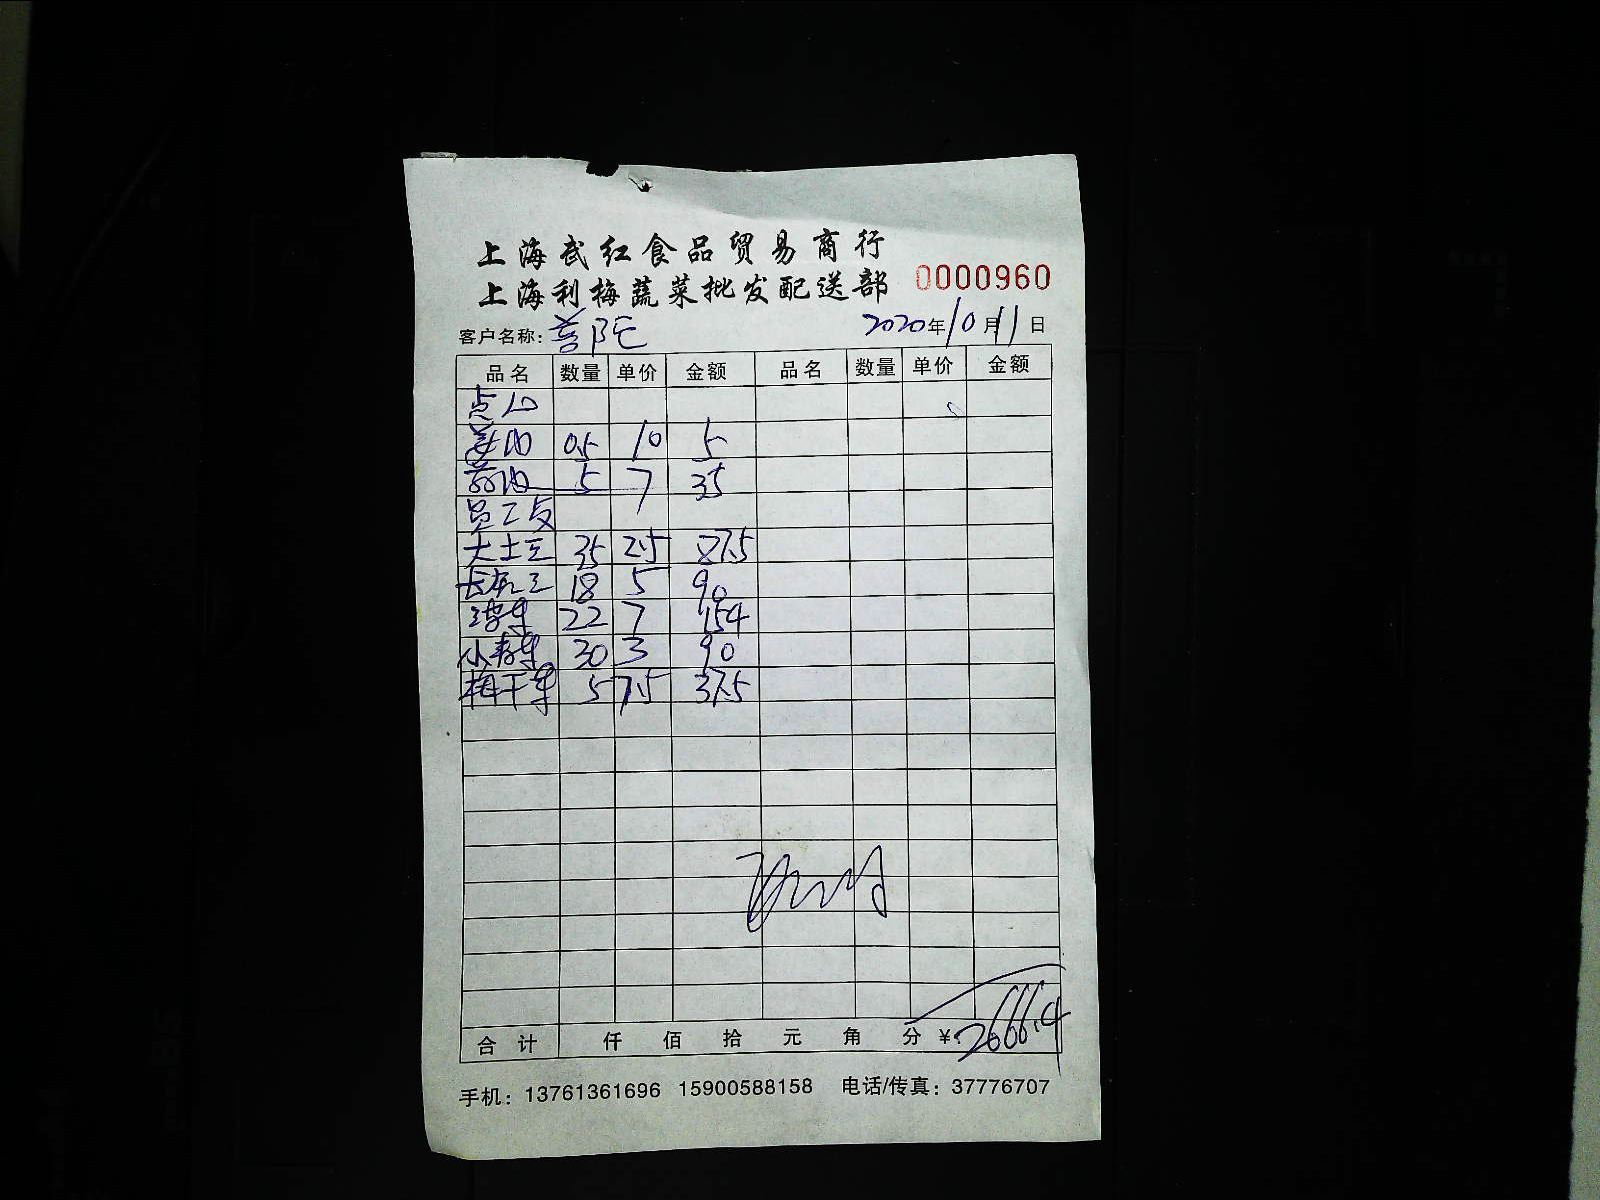 上海武红食品贸易商行
上海利梅蔬菜批发配送部 0000960
客户名称: 普陀 2020年10月11日
品名 数量 单价 金额 品名 数量 单价 金额
点心
0.5 10 5
5 7 35
员工
大土豆 35 2.5 87.5
长 18 5 90
22 7 154
小青菜 30 3 90
梅干菜 5 7.5 37.5
合计 仟 佰 拾 元 角 分 ¥ 2666.4
手机: 13761361696 15900588158 电话/传真: 37776707